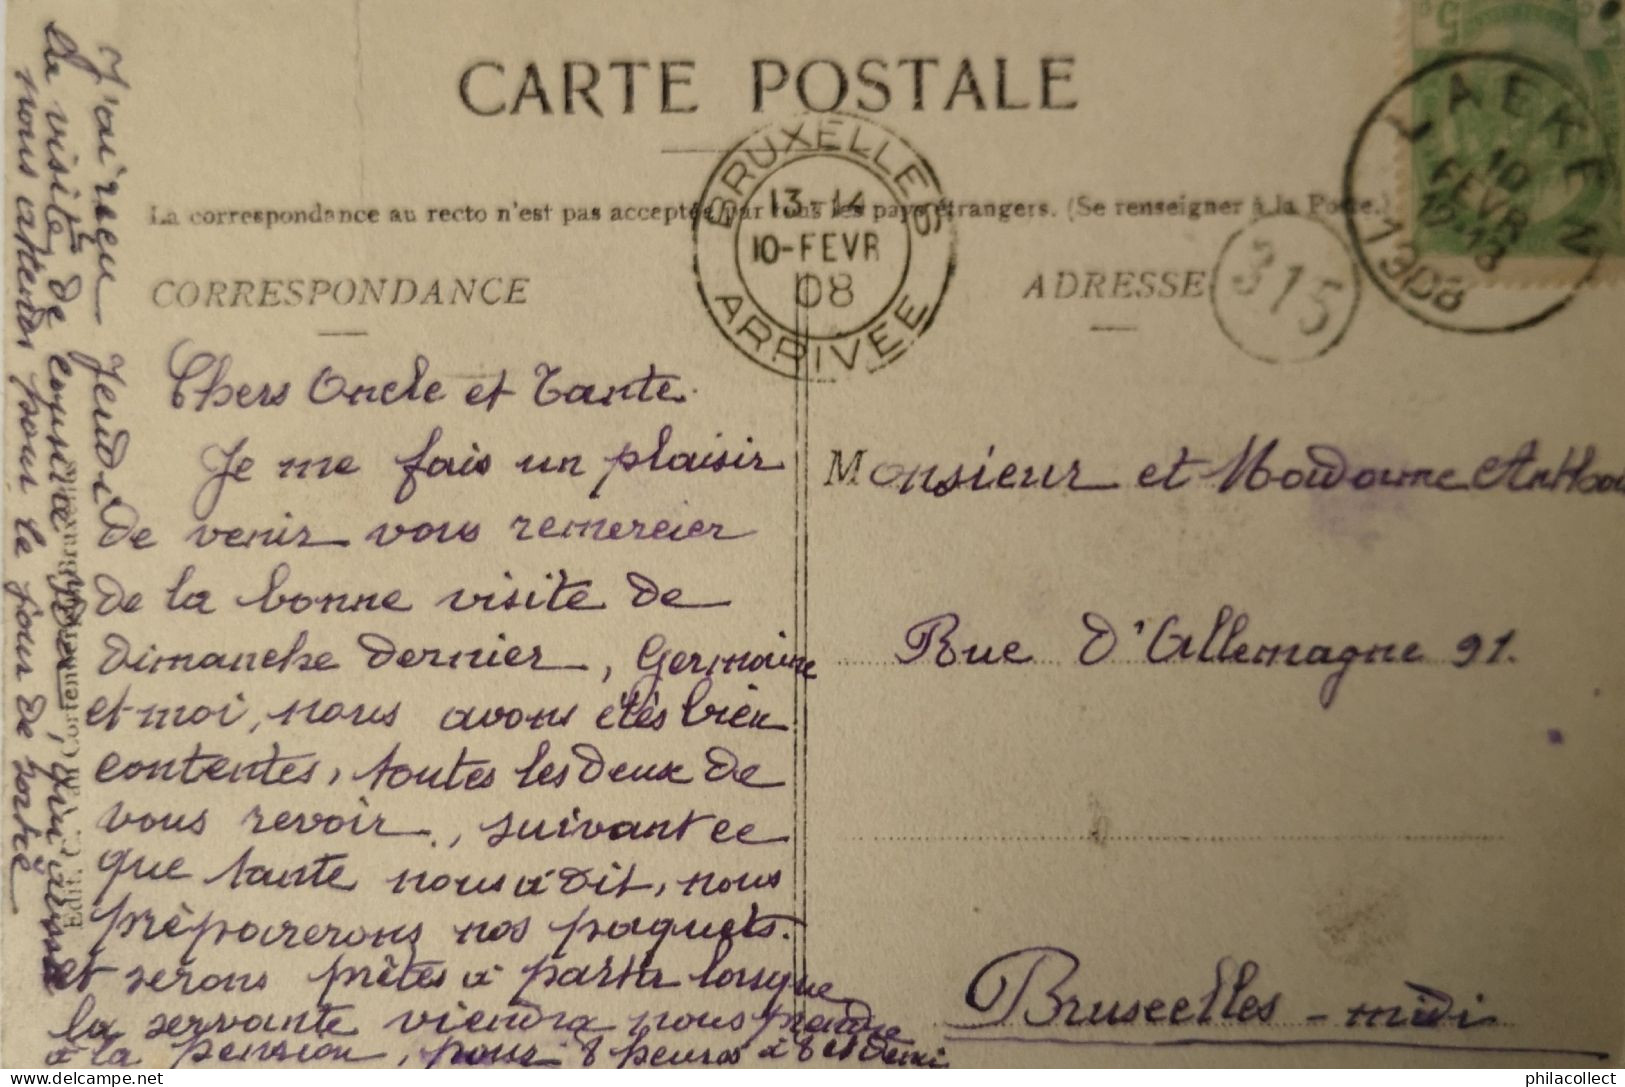 CARTE POSTALE
La correspondance au recto n'est pas acceptée par tous les pays étrangers. (Se renseigner à la Poste.)
CORRESPONDANCE
ADRESSE
BRUXELLES
13-14
10-FEVR
08
ARRIVEE
LAEKEN
10
FEVR
12-13
1908
315
5
Chers Oncle et Tante.
Je me fais un plaisir
de venir vous remercier
de la bonne visite de
dimanche dernier, Germaine
et moi, nous avons étés bien
contentes, toutes les deux de
vous revoir, suivant ce
que tante nous a dit, nous
préparerons nos paquets.
et serons prêtes à partir lorsque
la servante viendra nous prendre
à la pension, pour 8 heures à 8 et demi
J'ai reçu Jeudi
la visite de
nous attendons pour le jour de sortie
Monsieur et Madame
Rue d'Allemagne 91.
Bruxelles - midi
philacollect